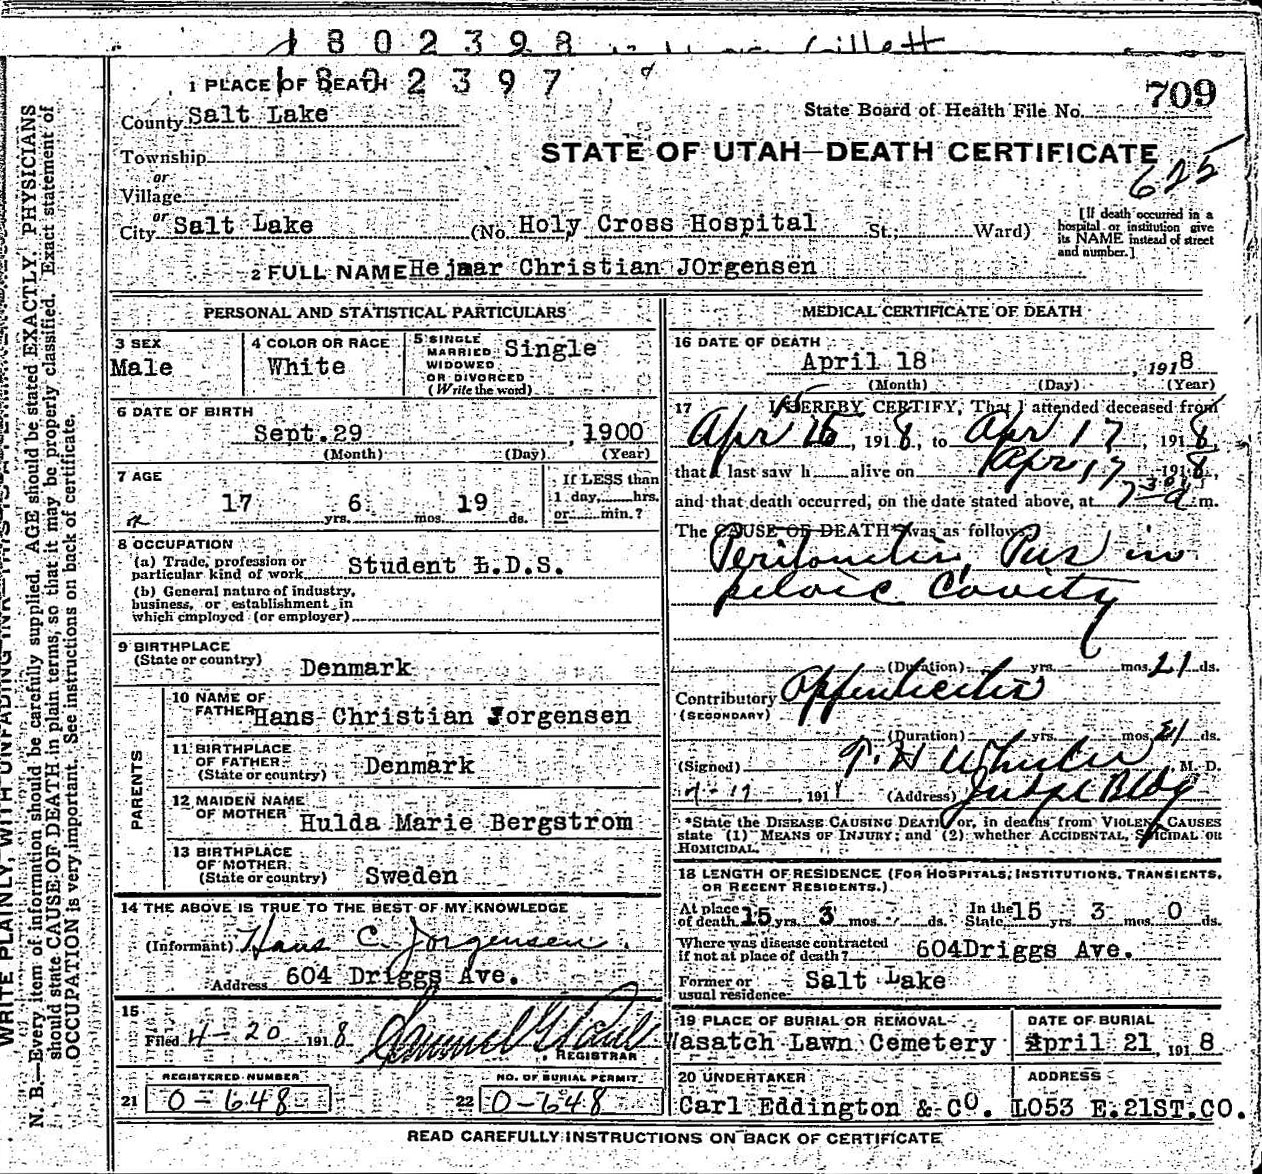 1802398 Gillett
1 PLACE OF DEATH 1802397
County Salt Lake
State Board of Health File No. 709
Township
STATE OF UTAH—DEATH CERTIFICATE
or
625
Village
or
City Salt Lake (No. Holy Cross Hospital St.; Ward)
[If death occurred in a
hospital or institution give
its NAME instead of street
and number.]
2 FULL NAME Hejmar Christian JOrgensen
PERSONAL AND STATISTICAL PARTICULARS
3 SEX
Male
4 COLOR OR RACE
White
5 SINGLE
MARRIED
WIDOWED
OR DIVORCED
(Write the word)
Single
6 DATE OF BIRTH
Sept.29, 1900
(Month) (Day) (Year)
7 AGE
17 yrs. 6 mos. 19 ds.
If LESS than
1 day, hrs.
or min.?
8 OCCUPATION
(a) Trade, profession or
particular kind of work Student L.D.S.
(b) General nature of industry,
business, or establishment in
which employed (or employer)
9 BIRTHPLACE
(State or country) Denmark
PARENTS
10 NAME OF
FATHER Hans Christian Jorgensen
11 BIRTHPLACE
OF FATHER
(State or country) Denmark
12 MAIDEN NAME
OF MOTHER Hulda Marie Bergstrom
13 BIRTHPLACE
OF MOTHER
(State or country) Sweden
14 THE ABOVE IS TRUE TO THE BEST OF MY KNOWLEDGE
(Informant) Hans C. Jorgensen.
Address 604 Driggs Ave.
15
Filed 4-20 1918
, REGISTRAR
REGISTERED NUMBER
21 0-648
NO. OF BURIAL PERMIT
22 0-648
MEDICAL CERTIFICATE OF DEATH
16 DATE OF DEATH
April 18, 1918
(Month) (Day) (Year)
17 I HEREBY CERTIFY, That I attended deceased from
Apr 15, 1918, to Apr 17, 1918,
that I last saw h alive on Apr 17 1918,
and that death occurred, on the date stated above, at 7 30 a m.
The CAUSE OF DEATH* was as follows:
Peritonitis, Pus in
pelvic Cavity
(Duration) yrs. mos. 21 ds.
Contributory Appendicitis
(SECONDARY)
(Duration) yrs. mos. 21 ds.
(Signed) M. D.
191 (Address) Judge Bldg
*State the DISEASE CAUSING DEATH, or, in deaths from VIOLENT CAUSES
state (1) MEANS OF INJURY; and (2) whether ACCIDENTAL, SUICIDAL OR
HOMICIDAL.
18 LENGTH OF RESIDENCE (FOR HOSPITALS, INSTITUTIONS, TRANSIENTS,
OR RECENT RESIDENTS.)
At place
of death 15 yrs. 3 mos. ds. In the State 15 yrs. 3 mos. 0 ds.
Where was disease contracted
if not at place of death? 604Driggs Ave.
Former or
usual residence Salt Lake
19 PLACE OF BURIAL OR REMOVAL
Wasatch Lawn Cemetery
DATE OF BURIAL
April 21, 1918
20 UNDERTAKER
Carl Eddington & CO.
ADDRESS
LO53 E.21ST.CO.
READ CAREFULLY INSTRUCTIONS ON BACK OF CERTIFICATE
WRITE PLAINLY, WITH UNFADING INK—THIS
N. B.—Every item of information should be carefully supplied. AGE should be stated EXACTLY. PHYSICIANS
should state CAUSE OF DEATH in plain terms, so that it may be properly classified. Exact statement of
OCCUPATION is very important. See instructions on back of certificate.